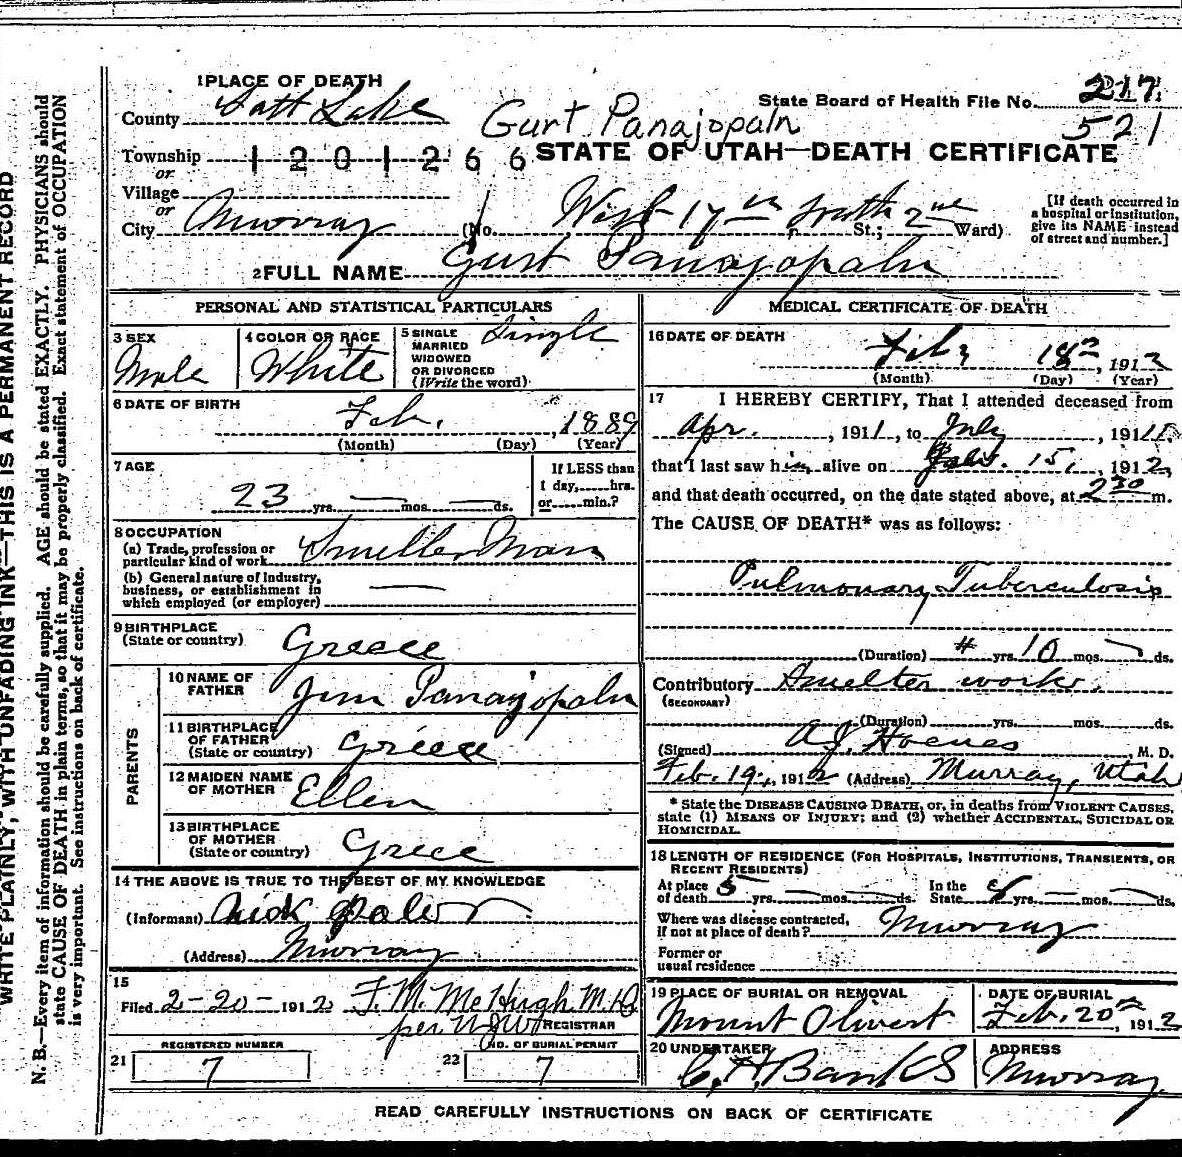 1 PLACE OF DEATH
County Salt Lake
State Board of Health File No. 217
521
Gurt Panajopaln
Township 1201266
or
Village
or
City Murray
STATE OF UTAH—DEATH CERTIFICATE
(No. West 17th South St.; 2nd Ward)
[If death occurred in
a hospital or institution,
give its NAME instead
of street and number.]
2 FULL NAME Gurt Panajopaln
PERSONAL AND STATISTICAL PARTICULARS
3 SEX
Male
4 COLOR OR RACE
White
5 SINGLE
MARRIED
WIDOWED
OR DIVORCED
(Write the word)
Single
6 DATE OF BIRTH
Feb. , 1889
(Month) (Day) (Year)
7 AGE
23 yrs. — mos. — ds.
If LESS than
1 day, hrs.
or min.?
8 OCCUPATION
(a) Trade, profession or
particular kind of work Smelter Man
(b) General nature of Industry,
business, or establishment in
which employed (or employer) —
9 BIRTHPLACE
(State or country) Greece
PARENTS
10 NAME OF
FATHER Jim Panajopaln
11 BIRTHPLACE
OF FATHER
(State or country) Griece
12 MAIDEN NAME
OF MOTHER Ellen
13 BIRTHPLACE
OF MOTHER
(State or country) Grece
14 THE ABOVE IS TRUE TO THE BEST OF MY KNOWLEDGE
(Informant) Nick
(Address) Murray
15
Filed 2-20-1912 F. M. McHugh M.D.
per
REGISTRAR
21 REGISTERED NUMBER
7
22 NO. OF BURIAL PERMIT
7
MEDICAL CERTIFICATE OF DEATH
16 DATE OF DEATH
Feb, 18th, 1912
(Month) (Day) (Year)
17 I HEREBY CERTIFY, That I attended deceased from
Apr. , 1911, to July , 1911,
that I last saw him alive on 15, , 1912,
and that death occurred, on the date stated above, at 230 m.
The CAUSE OF DEATH* was as follows:
Pulmonary Tuberculosis
(Duration) yrs. 10 mos. — ds.
Contributory Smelter work.
(SECONDARY)
(Duration) yrs. mos. ds.
(Signed) A.J. Hoenes M. D.
Feb. 19, 1912 (Address) Murray, Utah
* State the DISEASE CAUSING DEATH, or, in deaths from VIOLENT CAUSES,
state (1) MEANS OF INJURY; and (2) whether ACCIDENTAL, SUICIDAL OR
HOMICIDAL.
18 LENGTH OF RESIDENCE (FOR HOSPITALS, INSTITUTIONS, TRANSIENTS, OR
RECENT RESIDENTS)
At place
of death 5 yrs. — mos. — ds. In the
State yrs. — mos. — ds.
Where was disease contracted,
if not at place of death? Murray
Former or
usual residence
19 PLACE OF BURIAL OR REMOVAL
Mount Olivert
DATE OF BURIAL
Feb. 20th, 1912
20 UNDERTAKER
C. H. Banks
ADDRESS
Murray
READ CAREFULLY INSTRUCTIONS ON BACK OF CERTIFICATE
WRITE PLAINLY, WITH UNFADING INK—THIS IS A PERMANENT RECORD
N. B.—Every item of information should be carefully supplied. AGE should be stated EXACTLY. PHYSICIANS should
state CAUSE OF DEATH in plain terms, so that it may be properly classified. Exact statement of OCCUPATION
is very important. See instructions on back of certificate.